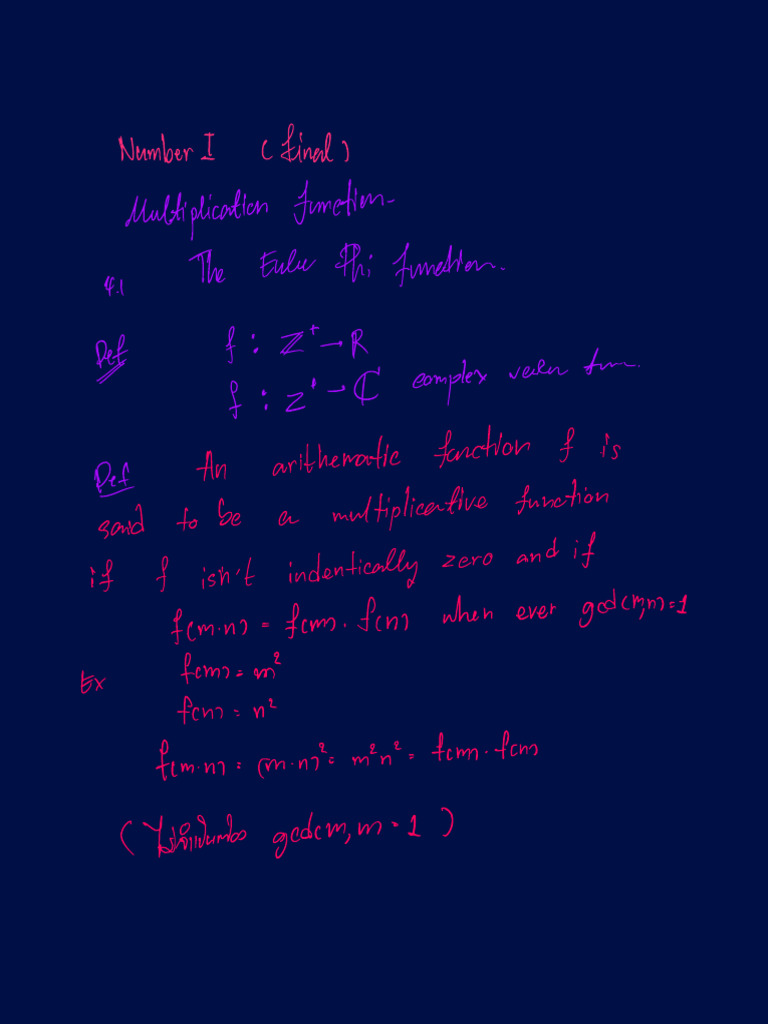 Number I (final)
Multiplication function.
4.1 The Euler Phi function.
Def f : Z⁺ → R
f : Z⁺ → ℂ complex
Def An arithematic function f is
said to be a multiplicative function
if f isn't indentically zero and if
f(m·n) = f(m) · f(n) when ever gcd(m,n)=1
Ex f(m) = m²
f(n) = n²
f(m·n) = (m·n)² = m²n² = f(m) · f(n)
gcd(m, n) = 1 )